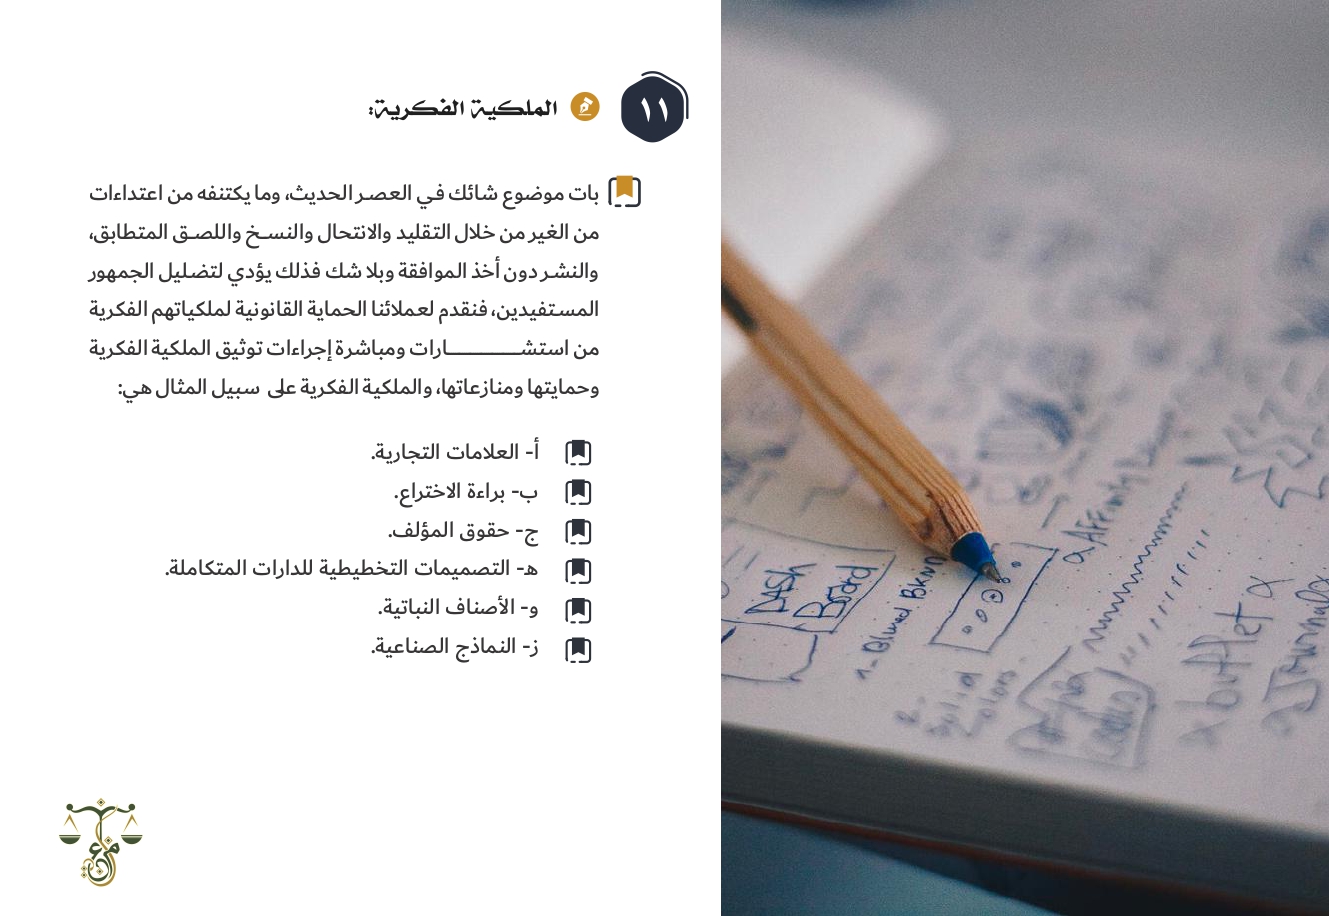 ١١
الملكية الفكرية:
بات موضوع شائك في العصر الحديث، وما يكتنفه من اعتداءات
من الغير من خلال التقليد والانتحال والنسخ واللصق المتطابق،
والنشر دون أخذ الموافقة وبلا شك فذلك يؤدي لتضليل الجمهور
المستفيدين، فنقدم لعملائنا الحماية القانونية لملكياتهم الفكرية
من استشـــــــــــارات ومباشرة إجراءات توثيق الملكية الفكرية
وحمايتها ومنازعاتها، والملكية الفكرية على سبيل المثال هي:
أ- العلامات التجارية.
ب- براءة الاختراع.
ج- حقوق المؤلف.
هـ- التصميمات التخطيطية للدارات المتكاملة.
و- الأصناف النباتية.
ز- النماذج الصناعية.
DASH
Board